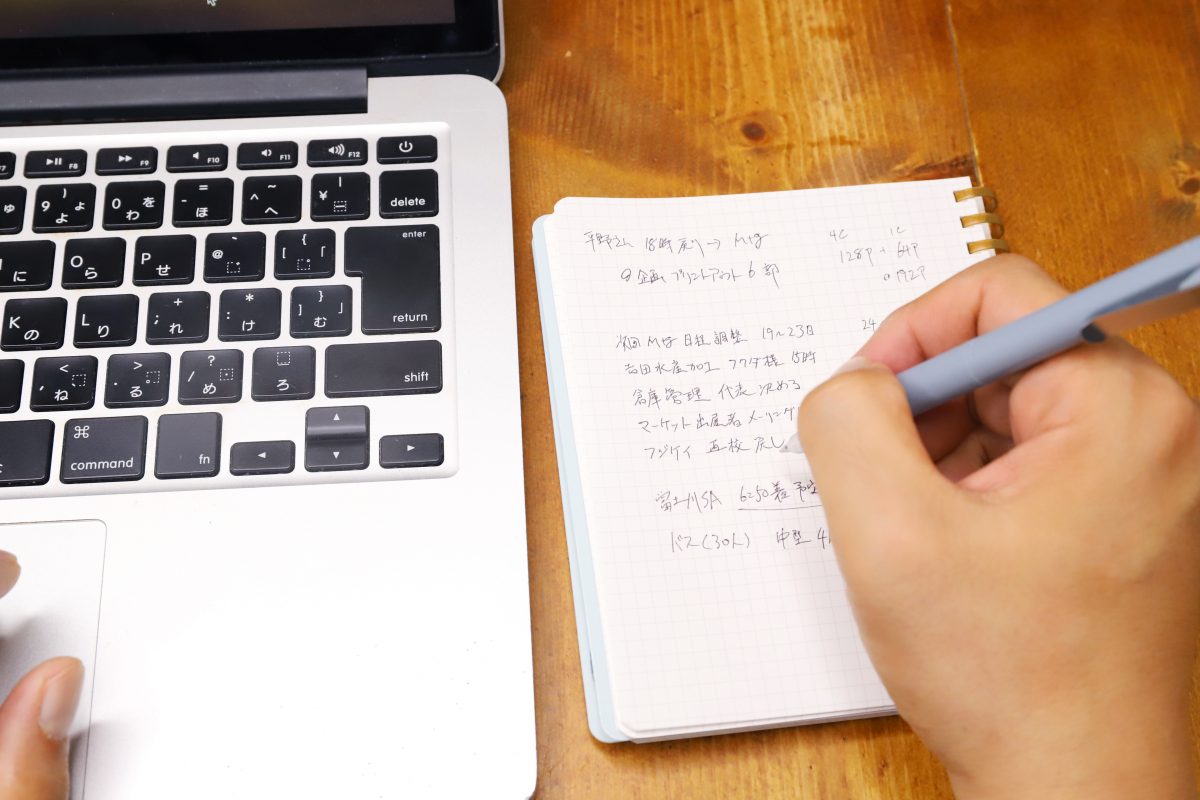 F7 F8 F9 F10 F11 F12
ゅ 9 ) よ ょ 0 を わ - = ほ ^ ~ へ ¥ | ー delete
に O ら P せ @ ` ゛ [ { 「 ゜ enter return
K の L り ; + れ : * け ] } 」 む
ね , < 、 . > 。 る / ? ・ め ろ shift
⌘ command fn ◀ ▲ ▼ ▶
平野さん 18時戻り→Mtg 4C 1C
企画 プリントアウト 6部 128P + 64P
192P
次回 Mtg 日程調整 19〜23日 24
吉田水産加工 フクダ様 15時
倉庫管理 代表 決める
マーケット出店者 メーリング
フジケイ 再校 戻し
富士川SA 6:50着予定
バス(30人) 中型 4